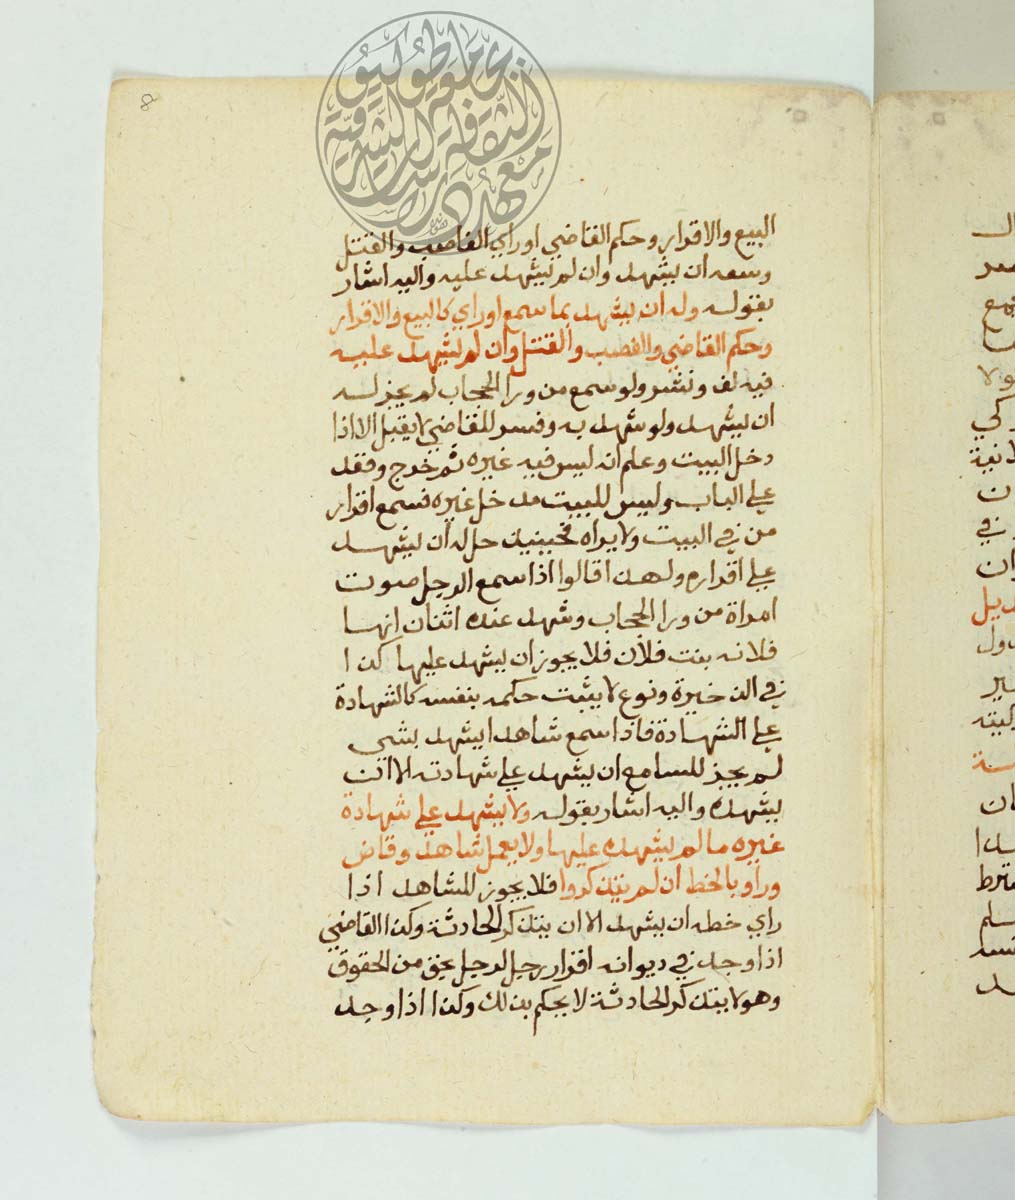 8
البيع والاقرار وحكم القاضي او راي الغاصب والقتل
وسعه ان يشهد وان لم يشهد عليه واليه اشار
بقوله وله ان يشهد بما سمع او راي كالبيع والاقرار
وحكم القاضي والغصب والقتل وان لم يشهد عليه
فيه لف ونشر ولو سمع من ورا الحجاب لم يجز له
ان يشهد ولو شهد به وفسر للقاضي لا يقبل الا اذا
دخل البيت وعلم انه ليس فيه غيره ثم خرج وقعد
علي الباب وليس للبيت مدخل غيره فسمع اقرار
من في البيت ولا يراه فحينيذ حل له ان يشهد
علي اقراره ولهذا قالوا اذا سمع الرجل صوت
امراة من ورا الحجاب وشهد عنده اثنان انها
فلانه بنت فلان فلا يجوز ان يشهد عليها كذا
في الذخيرة ونوع لا يثبت حكمه بنفسه كالشهادة
علي الشهادة فاذا سمع شاهدا يشهد بشي
لم يجز للسامع ان يشهد علي شهادته الا ان
يشهده واليه اشار بقوله ولا يشهد علي شهادة
غيره ما لم يشهد عليها ولا يعمل شاهد وقاض
وراو بالخط ان لم يتذكروا فلا يجوز للشاهد اذا
راي خطه ان يشهد الا ان يتذكر الحادثة وكذا القاضي
اذا وجد في ديوانه اقرار رجل لرجل بحق من الحقوق
وهو لا يتذكر الحادثة لا يحكم بذلك وكذا اذا وجد